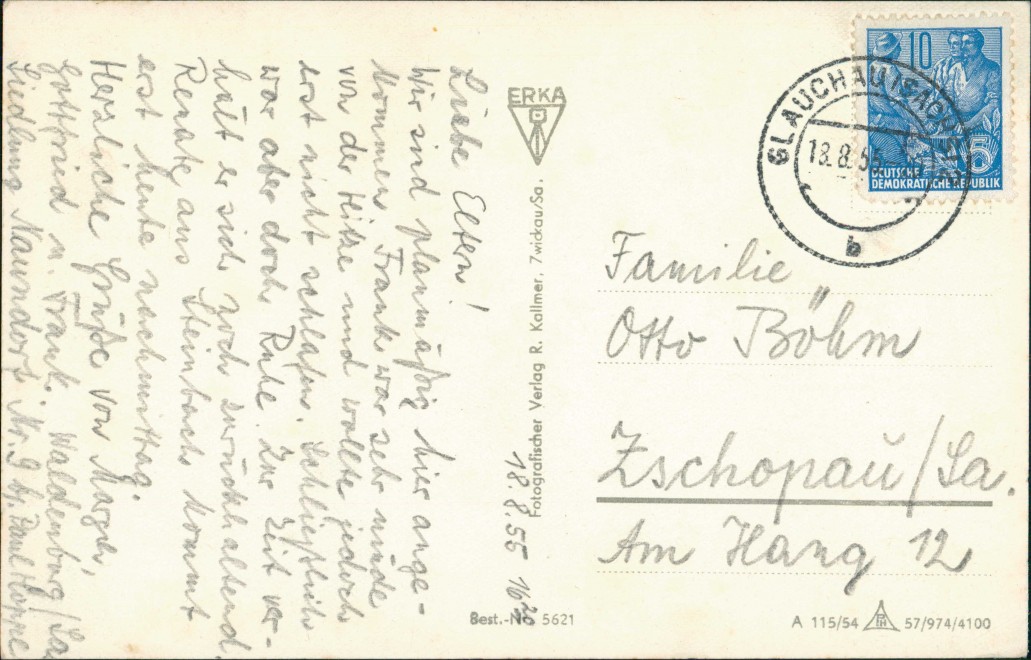 Liebe Eltern!
Wir sind planmäßig hier ange-
kommen. Frank war sehr müde
von der Hitze und wollte jedoch
erst nicht schlafen. Schließlich
war aber doch Ruhe. Zur Zeit ver-
hält er sich noch zurückhaltend.
Renate aus Steinbach kommt
erst heute nachmittag.
Herzliche Grüße von Margch,
Gottfried u. Frank. Waldenburg/Sa
Siedlung Naundorf Nr. 9 b. Paul Hoppe
18.8.55 16²⁰
ERKA
Fotografischer Verlag R. Kallmer, Zwickau/Sa.
Best.-No 5621
10
5
DEUTSCHE
DEMOKRATISCHE REPUBLIK
GLAUCHAU (SACHS)
18.8.55
b
Familie
Otto Böhm
Zschopau/Sa.
Am Hang 12
A 115/54 57/974/4100